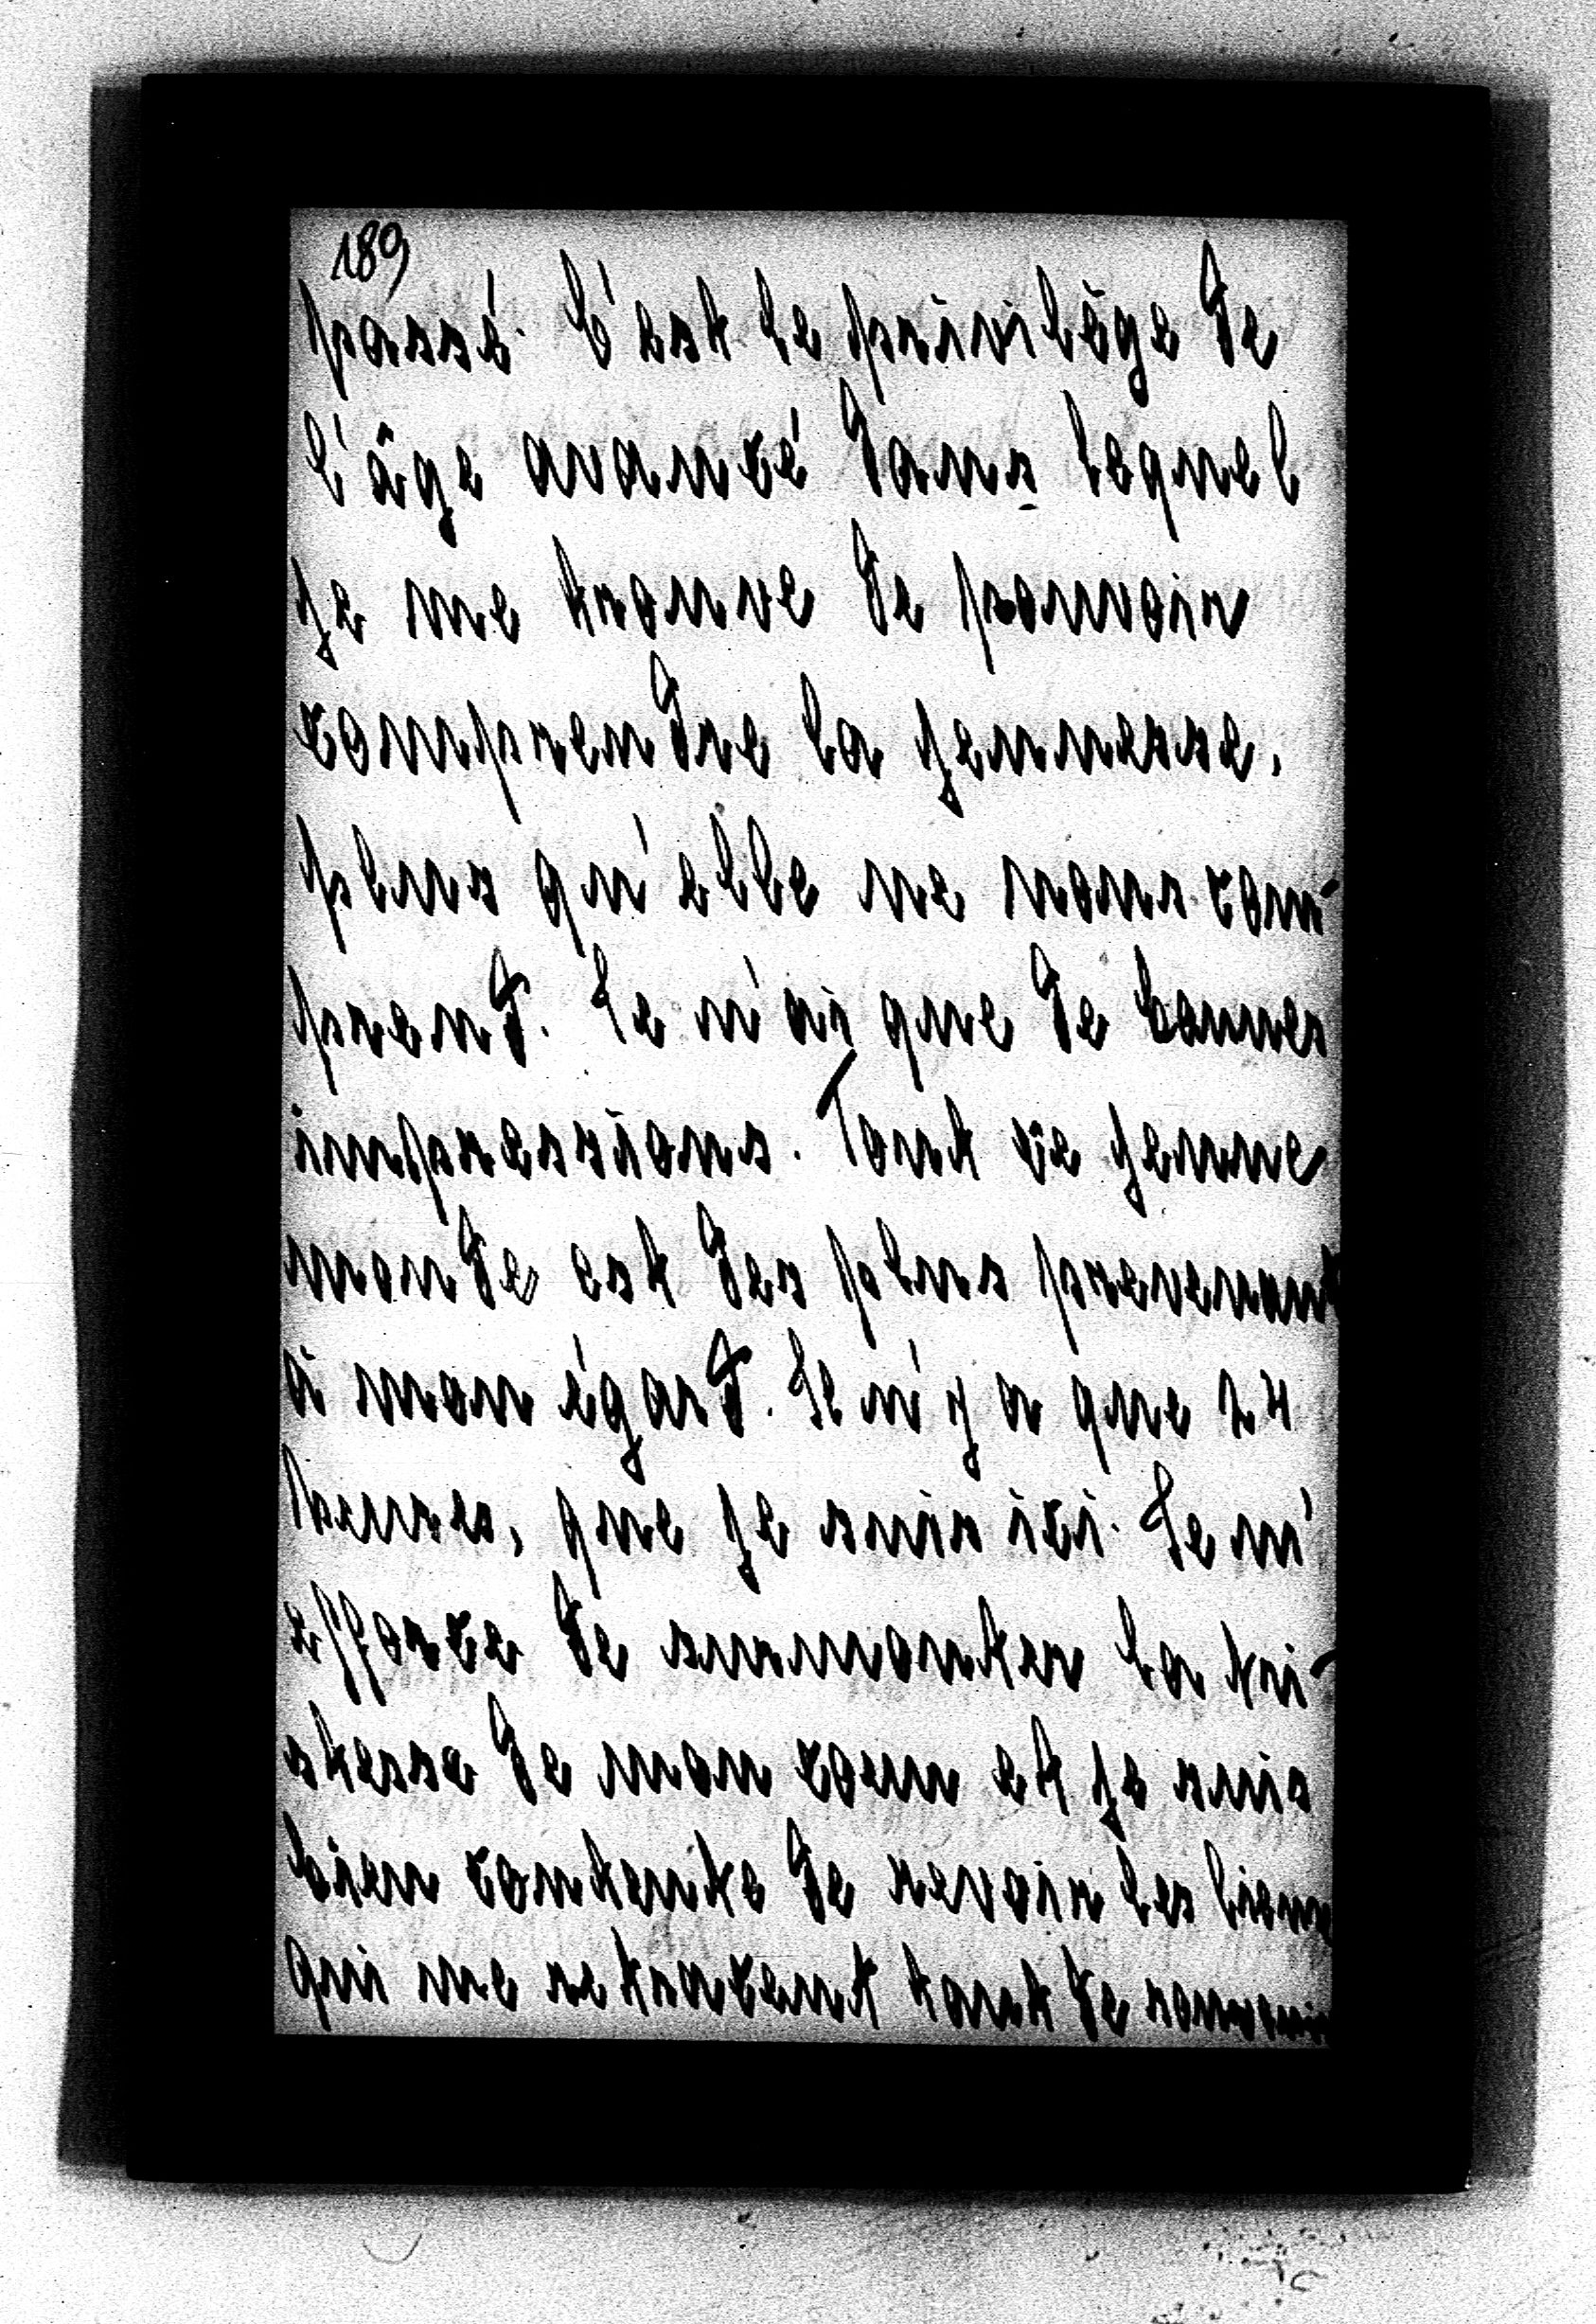 189
passé. C'est le privilège de
l'âge avancé dans lequel
je me trouve de pouvoir
comprendre la jeunesse,
plus qu'elle ne nous com-
prend. Je n'ai que de bonnes
impressions. Tout ce jeune
monde est des plus prevenant
à mon égard. Je n'y a que 24
heures, que je suis ici. Je m'
efforce de surmonter la tri-
stesse de mon coeur et je suis
bien contente de revoir les lieux
qui me retracent tant de souvenir